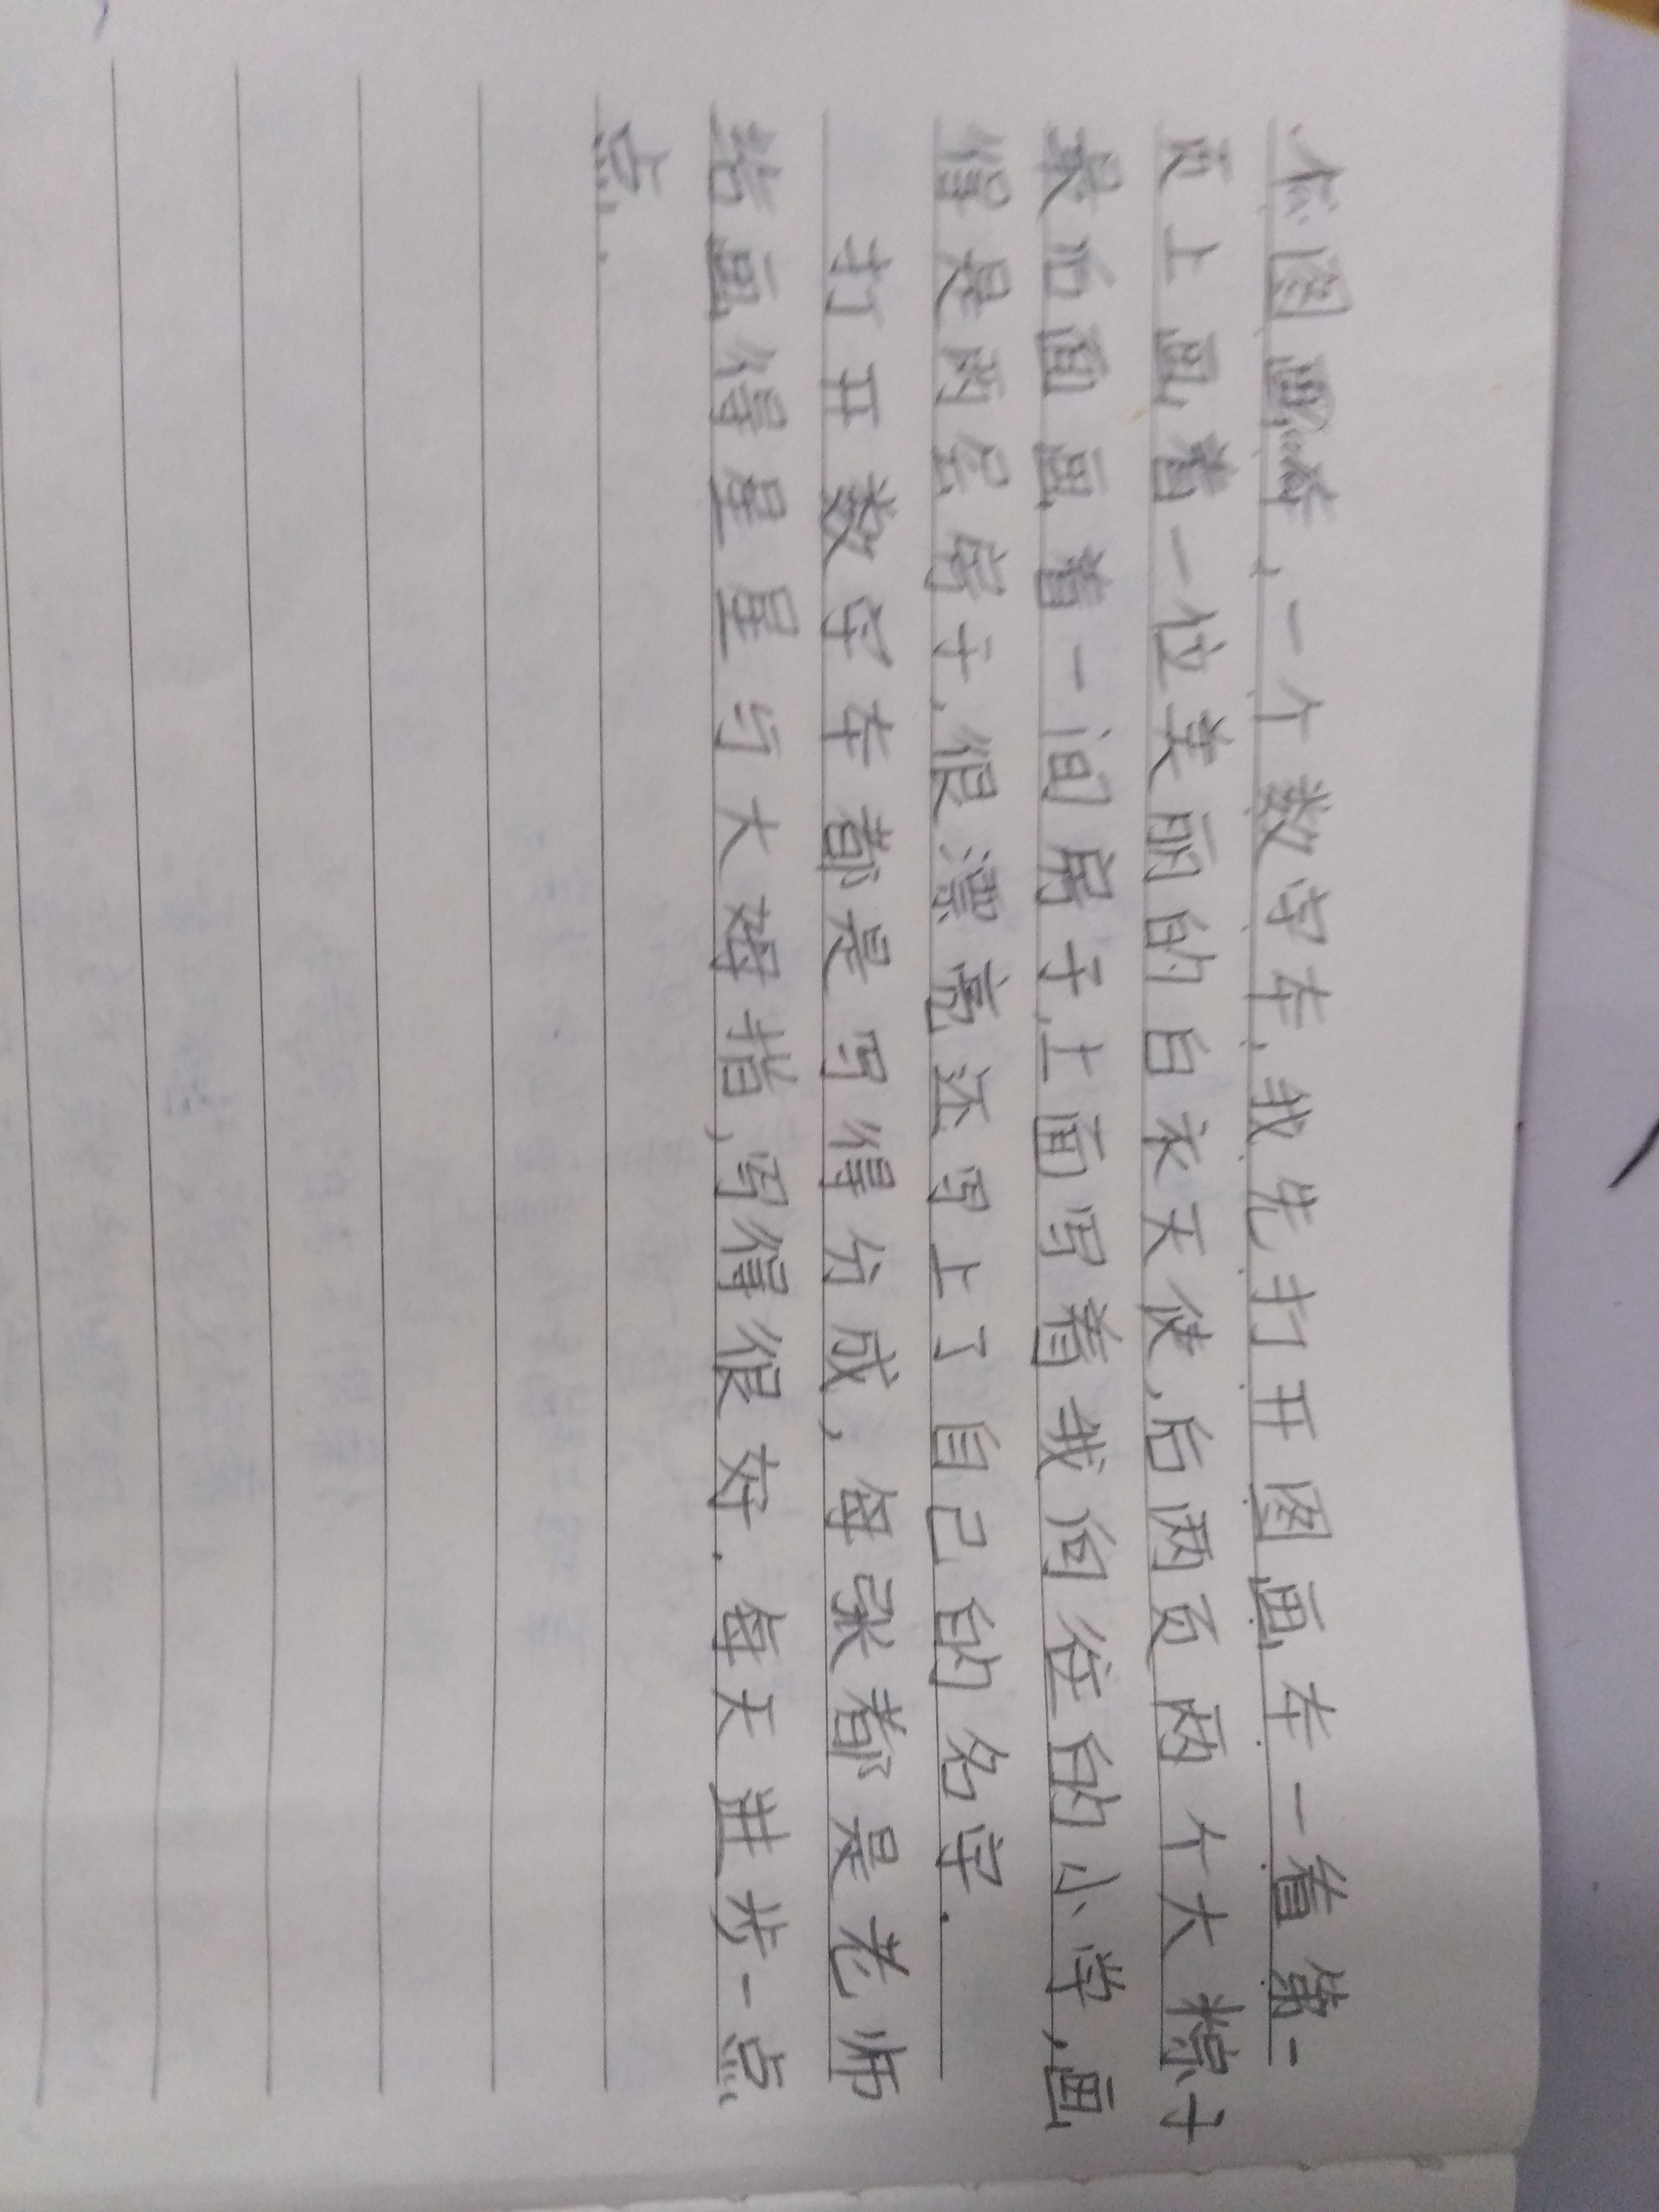 个图画本,一个数字本,我先打开图画本一看第一
页上画着一位美丽的白衣天使,后两页两个大粽子
最后面画着一间房子,上面写着我向往的小学,画
得是两层房子,很漂亮还写上了自己的名字.
打开数字本都是写得分成,每张都是老师
给画得星星与大姆指,写得很好.每天进步一点
点.